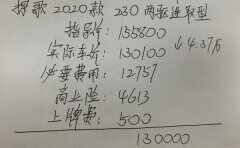 探歌 2020款 230 两驱进取型
指导价: 155800
实际车价: 130100 ↓4.37万
必要费用: 12757
商业险: 4613
上牌费: 500
130000